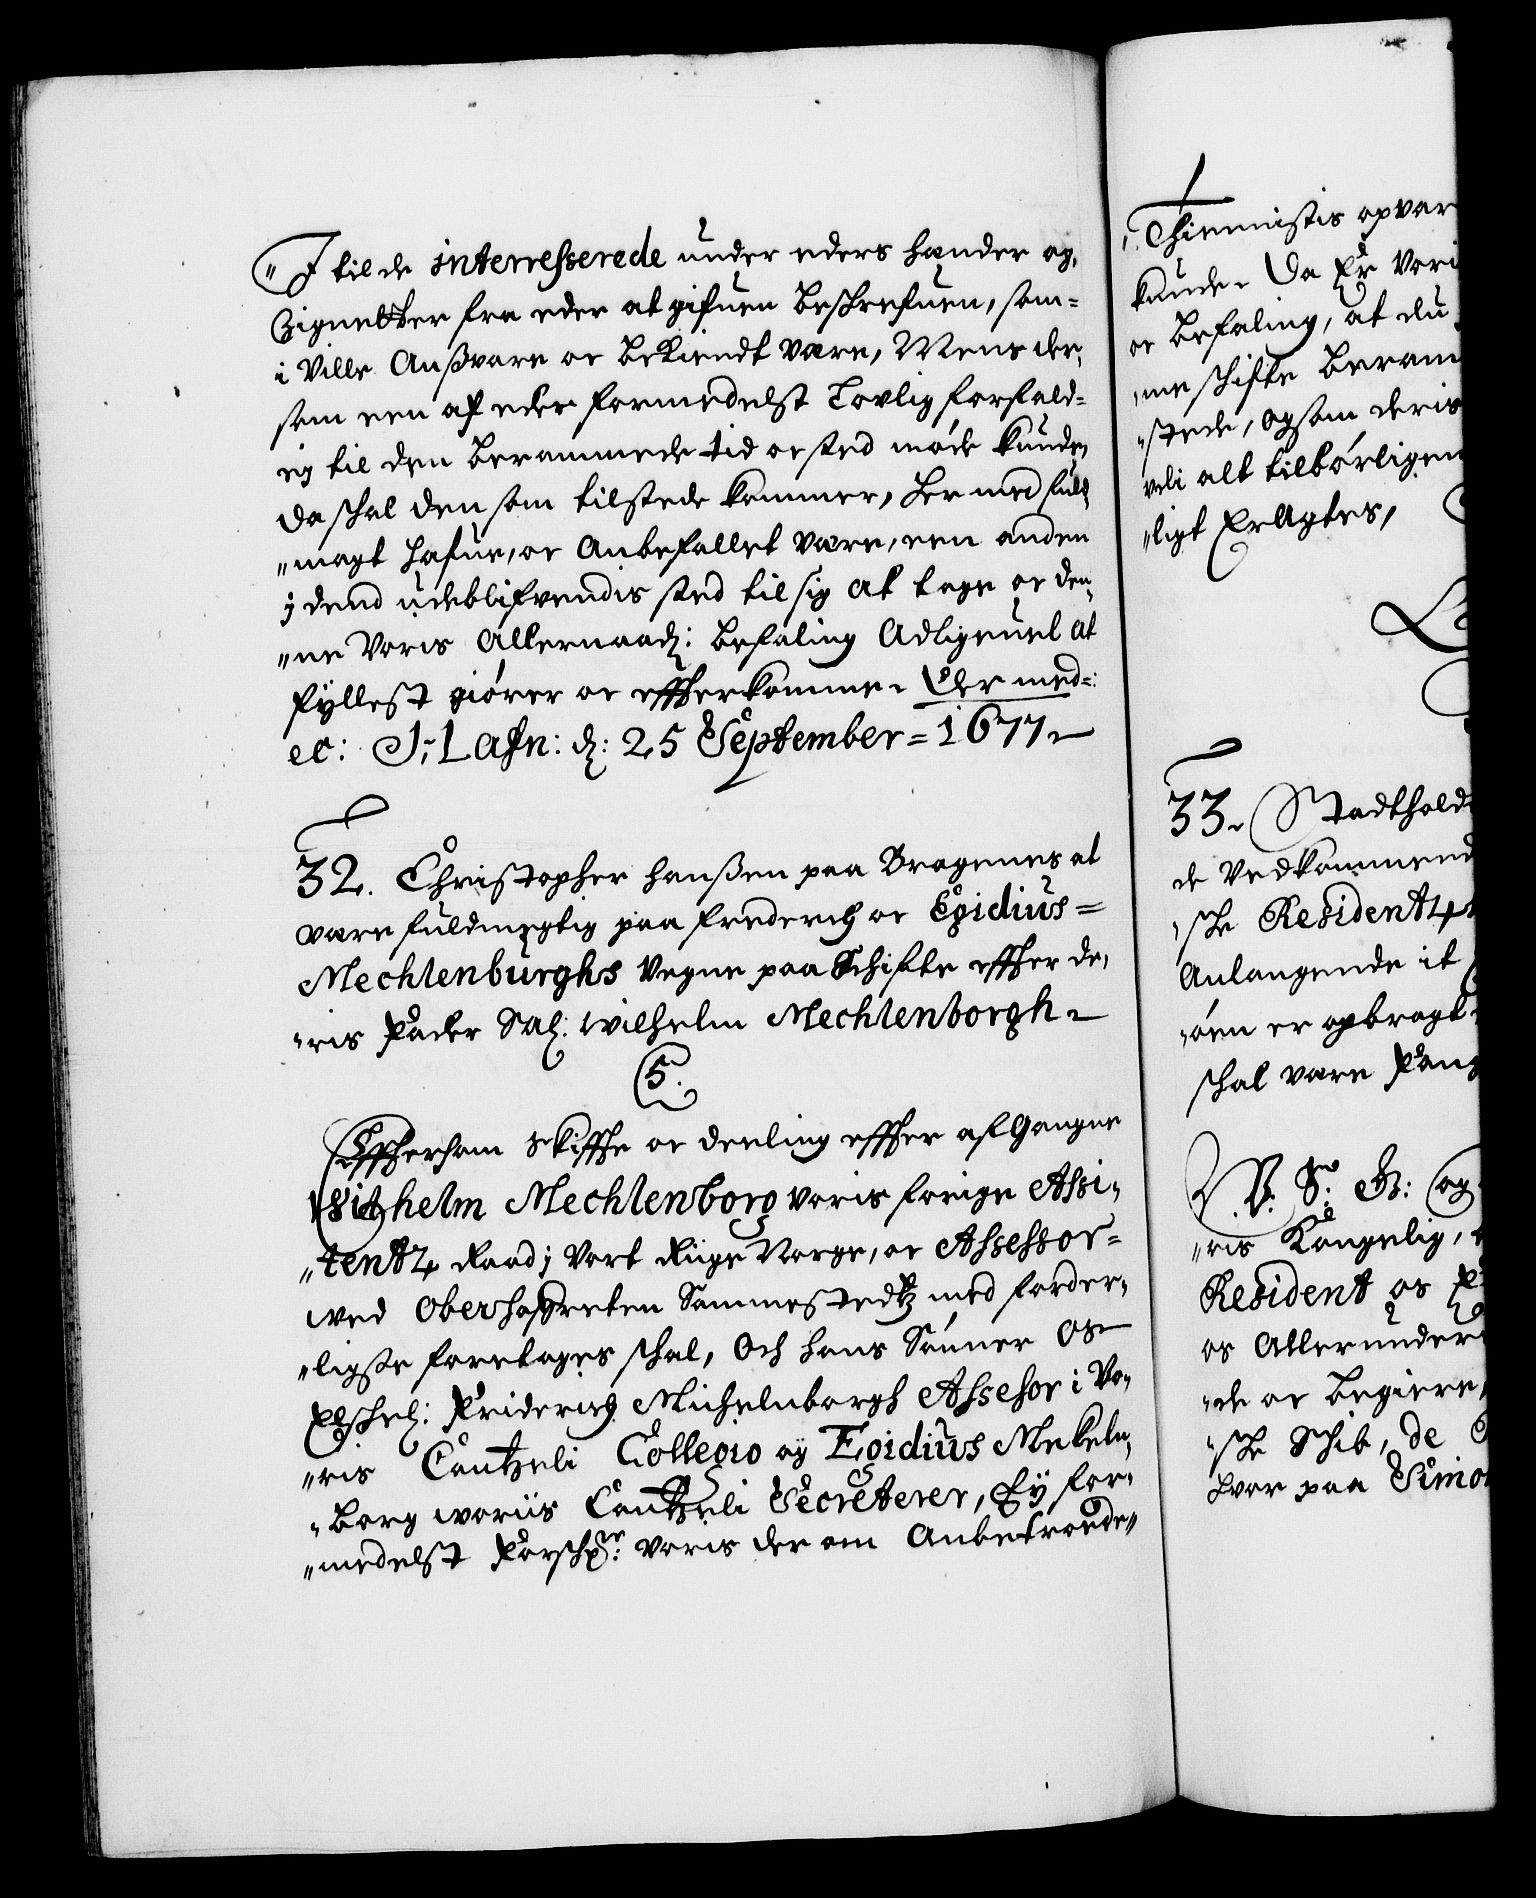 „I til de interresserede under eders hænder og,
Zignetter fra eder at gifuen beskrefuen, som=
i Ville Anßvare oc bekiendt være, Mens der,
som een af eder formedelst Lovlig forfald=
ej til den berammede tid oc sted møde kunde,
da skal den som tilstede kommer, her med fuld
„magt hafue, oc Anbefallet være, een anden
j dend udeblifvendis sted til sig at tage oc den„
„ne Voris Allernaad: befaling Adligevel at
fyllest giører oc effterkomme. Der med=:
ec: J: Lafn: d: 25 September = 1677
32. Christopher hanßen paa Bragenes at
være fuldmegtig paa frederich oc Egidius=
Mechlenburghs Vegne paa Schifte effter de„
„ris Fader Sal: wilhelm Mechlenborgh
5.
Efftersom skiffte oc deeling effter afGangne
Wilhelm Mechlenborg voris forige Assi„
„tentz Raad j Vort Riige Norge, oc Assessor=
wed Oberhofretten Sammestedtz med forder„
„ligste foretages skal, Och hans Sønner Os
Elschel: Friderich Michelnborgh Assessor i Vo„
„ris Cantzeli Collegio og Egidius Mekeln„
„borg woriis Cantzeli Secreterer, Ej for„
„medelst Forschr: voris der om Anbetroede„
„Thienistis opvar
kunde. Da Er Vori
oc befaling, at du
„me skifte beram
„stede, og som deris
veli alt tilbørligen
„ligt Eragtes,
33. Stadthold
de Vedkommend
„ske Residentz
Anlangende it
„øen er opbragt
skal være Fang
V. S: G: og
„ris Kongelig,
Resident os
os Allerunder
„de oc begiere,
„ske Schib, de
hvor paa Simo